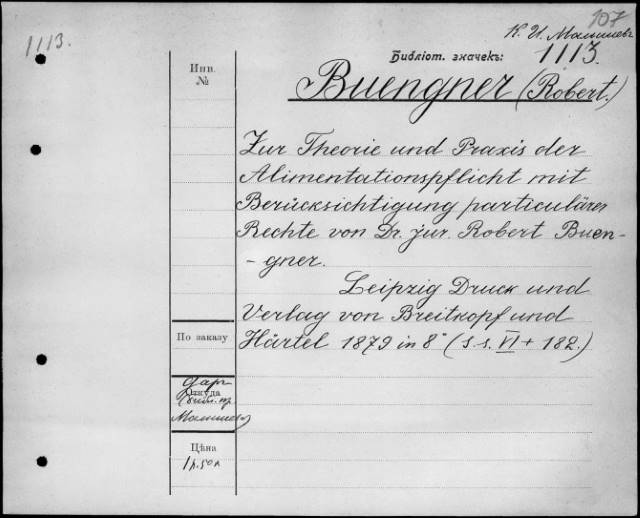 107
К. И. Малышевъ
1113.
Библіот. значекъ:
1113.
Инв.
№
Buengner (Robert.)
Zur Theorie und Praxis der
Alimentationspflicht mit
Berücksichtigung particulärer
Rechte von Dr. jur. Robert Buen-
-gner.
Leipzig Druck und
Verlag von Breitkopf und
Härtel 1879 in 8° (S. s. VI + 182.)
По заказу
Даръ
Откуда
Малышев
Цѣна
1 р. 50 к